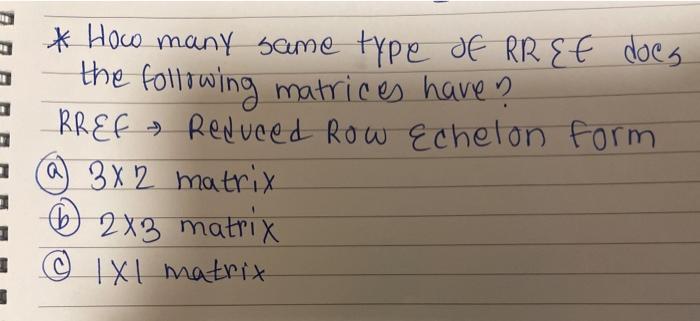 * How many same type of RREF does
the following matrices have?
RREF → Reduced Row Echelon form
(a) 3x2 matrix
(b) 2x3 matrix
(c) 1x1 matrix